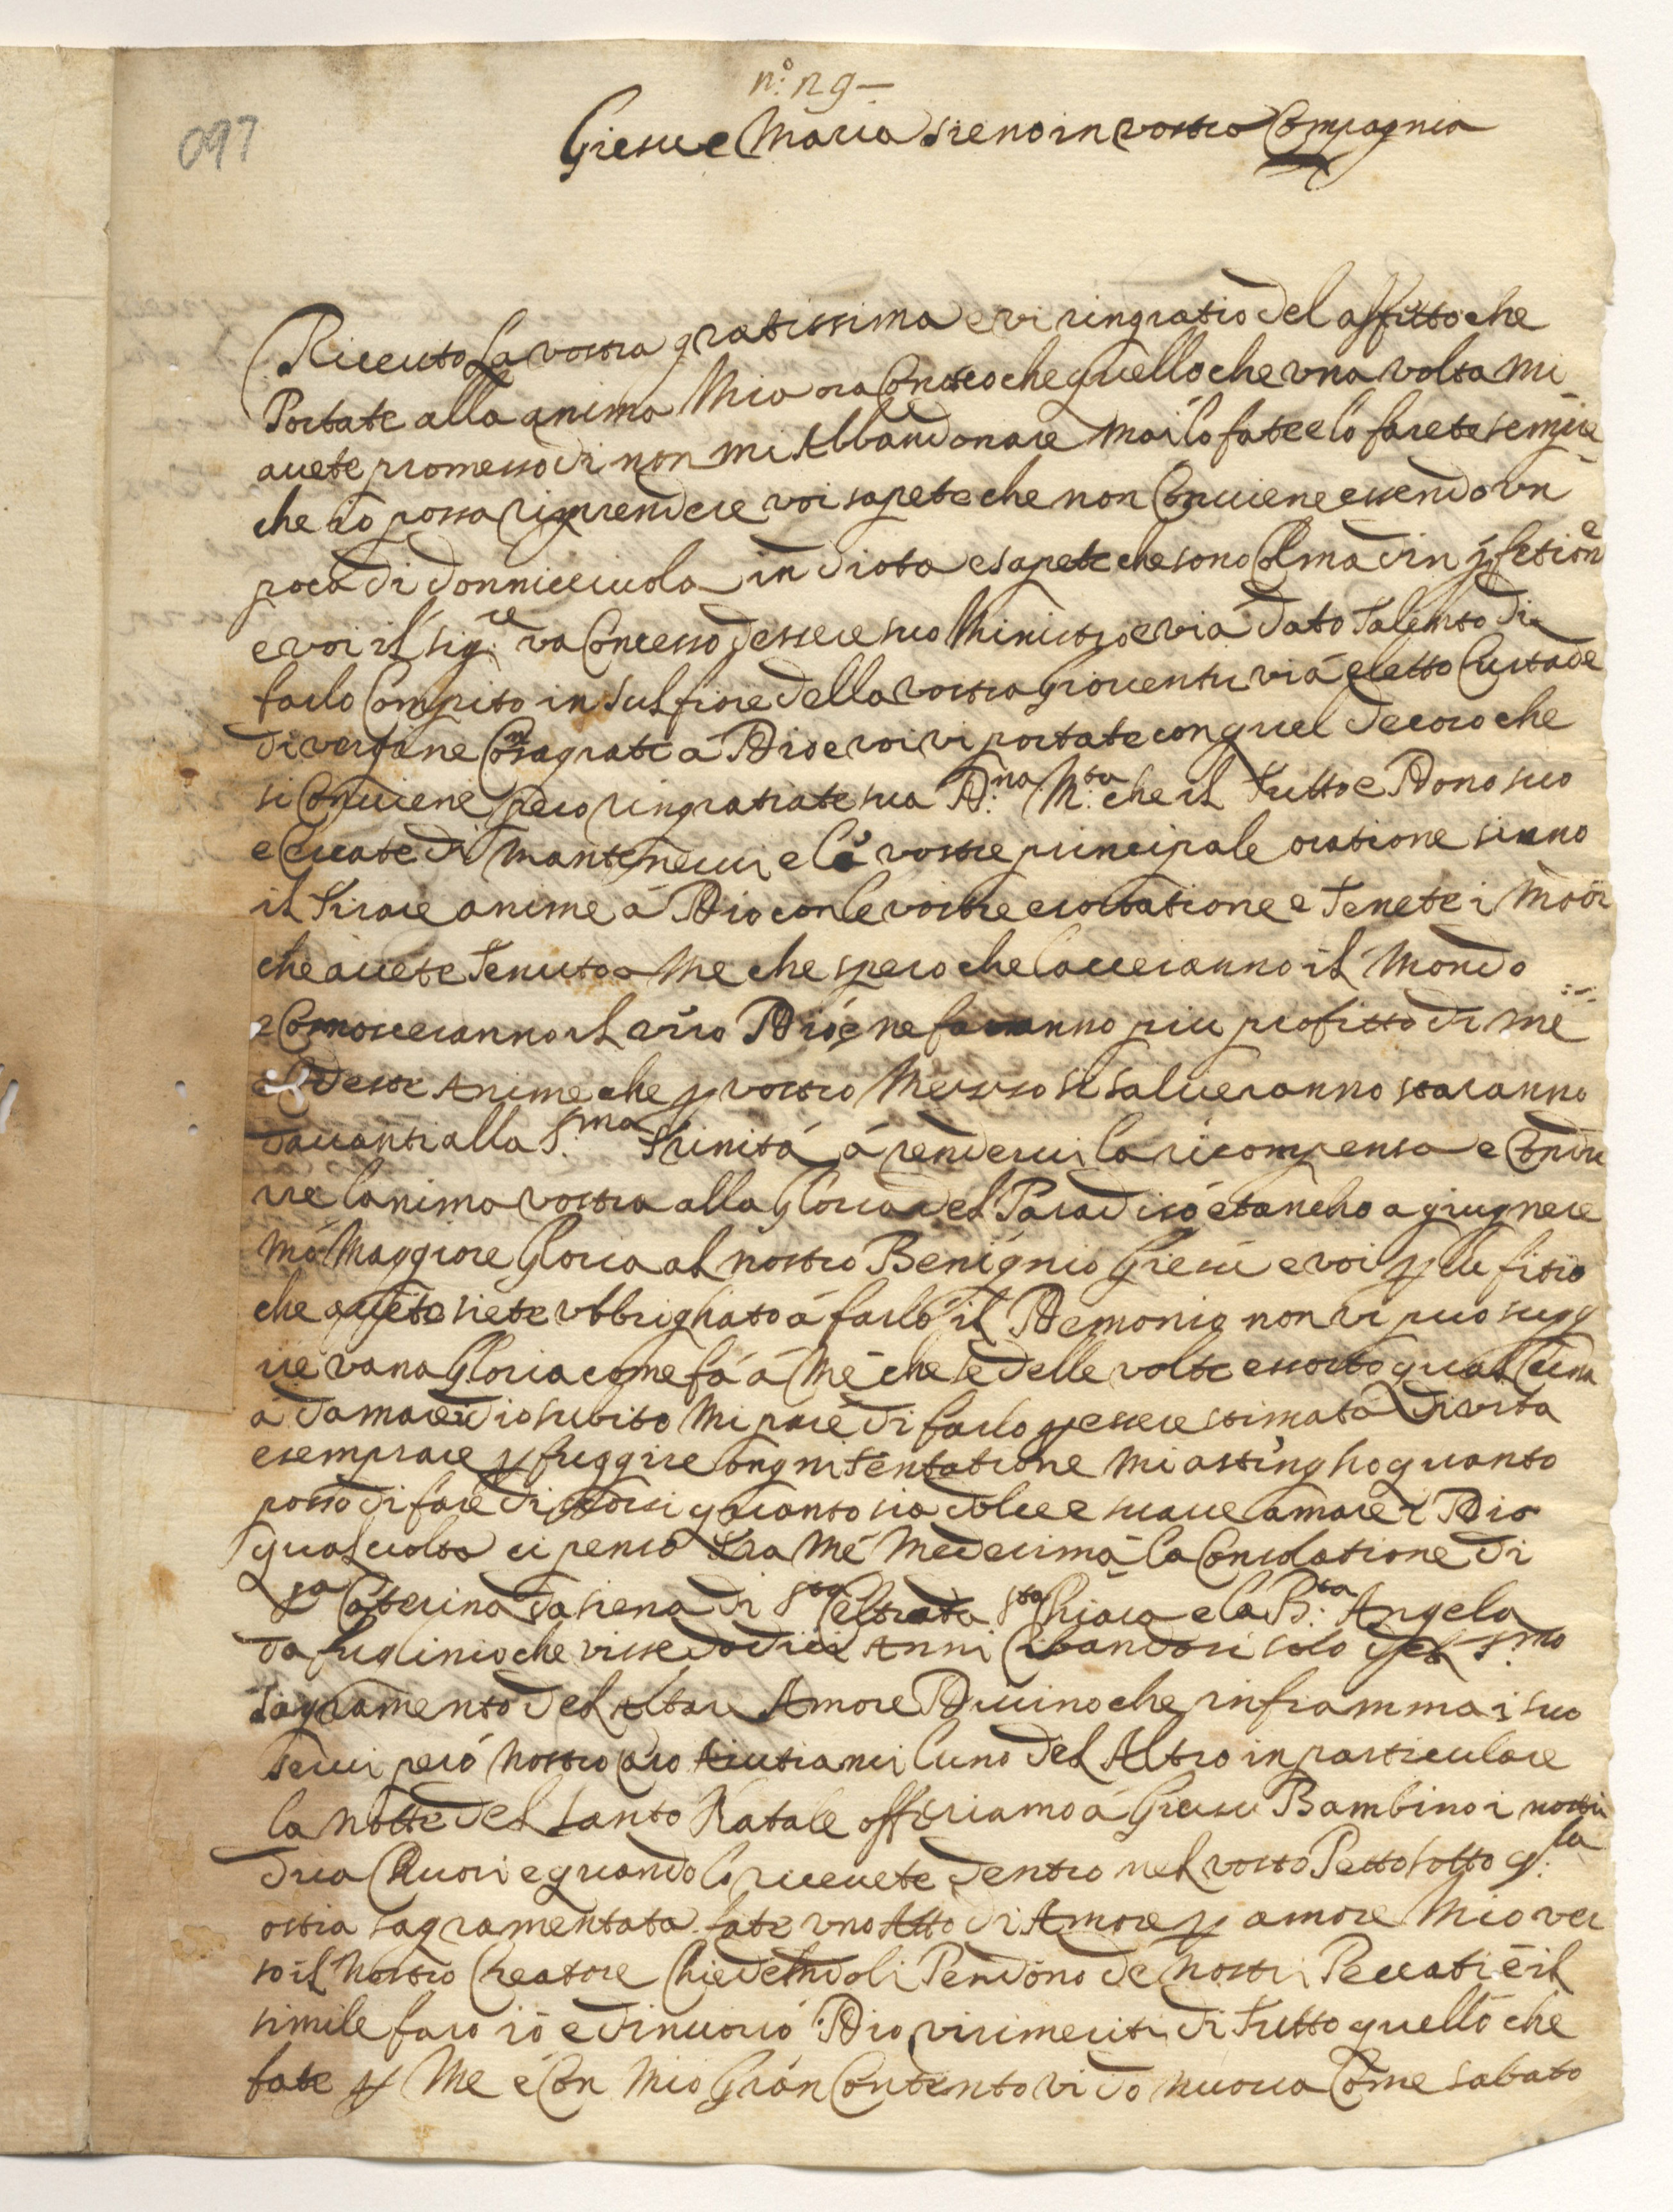 n.o n 9 —
097
Giesu e Maria sieno in vostra Compagnia
Riceuto La vostra gratissima e vi ringratio del affitto che
Portate alla anima Mia ora Conosco che quello che una volta mi
auete promesso di non mi Abbandonare mai lo fate e lo farete sempre
che io possa riprendere voi sapete che non Conuiene essendo un
poca di donnicciuola indiota e sapete che sono Colma din pfetione
e voi il sig.re va Concesso dessere suo Ministro e via dato Talento di
farlo Compito in sul fiore della vostra giouentu via eletto Custode
di vergine Consagrate a Dio e voi vi portate con quel decoro che
si Conuiene pero ringratiate sua D:na M:ta che il tutto e Dono suo
e Cercate di mantenerui e la vostre principale oratione sieno
il tirare anime á Dio con le vostre esortatione e tenete i modi
che auete tenuto a Me che spero che lasceranno il Mondo
e Conosceranno il vero Dio e ne faranno piu profitto di me
e desse Anime che p vostro Mezzo si salueranno staranno
dauanti alla S.ma Trinitá á renderui la ricompensa e Condu
rre lanima vostra alla Gloria del Paradiso et ancho a giugnere
Maggiore Gloria al nostro Benignio Giesu e voi p lu fitio
che auete siete ubbrighato á farlo il Demonio non vi puo sugg
rie vana Gloria come fá á Me che se delle volte essorto qual Cuna
á damare idio subito Mi pare di farlo p essere stimata di vita
esemprare p fuggire ongni tentatione Mi asstingho quanto
posso di fare discorsi quanto sia dolce e suaue amare Dio
qual volta ci penso tra Mé Medesima la Consolatione di
S.a Caterina da siena di S.ta Geltruda S.ta Chiara e la B:ta Angela
da fuglinio che visse dodici Anni Cibandosi solo del S.mo
Sagramento del Altare Amore Diuino che infiamma i suo
serui peró Nostro Caro Aiutiamci luno del Altro in particulare
la Notte del Santo Natale offeriamo á Giesu Bambino i nostri
dua Cuori e quando lo riceuete dentro nel vostro Petto sotto q:la
ostia sagramentata fate uno Atto di Amore p amore Mio ver
so il Nostro Creatore Chiedendoli Perdono de Nostri Peccati e il
simile faro io e di nuouo Dio vi rimeriti di tutto quello che
fate p Me e Con Mio Gran Contento vi do nuoua Come sabato